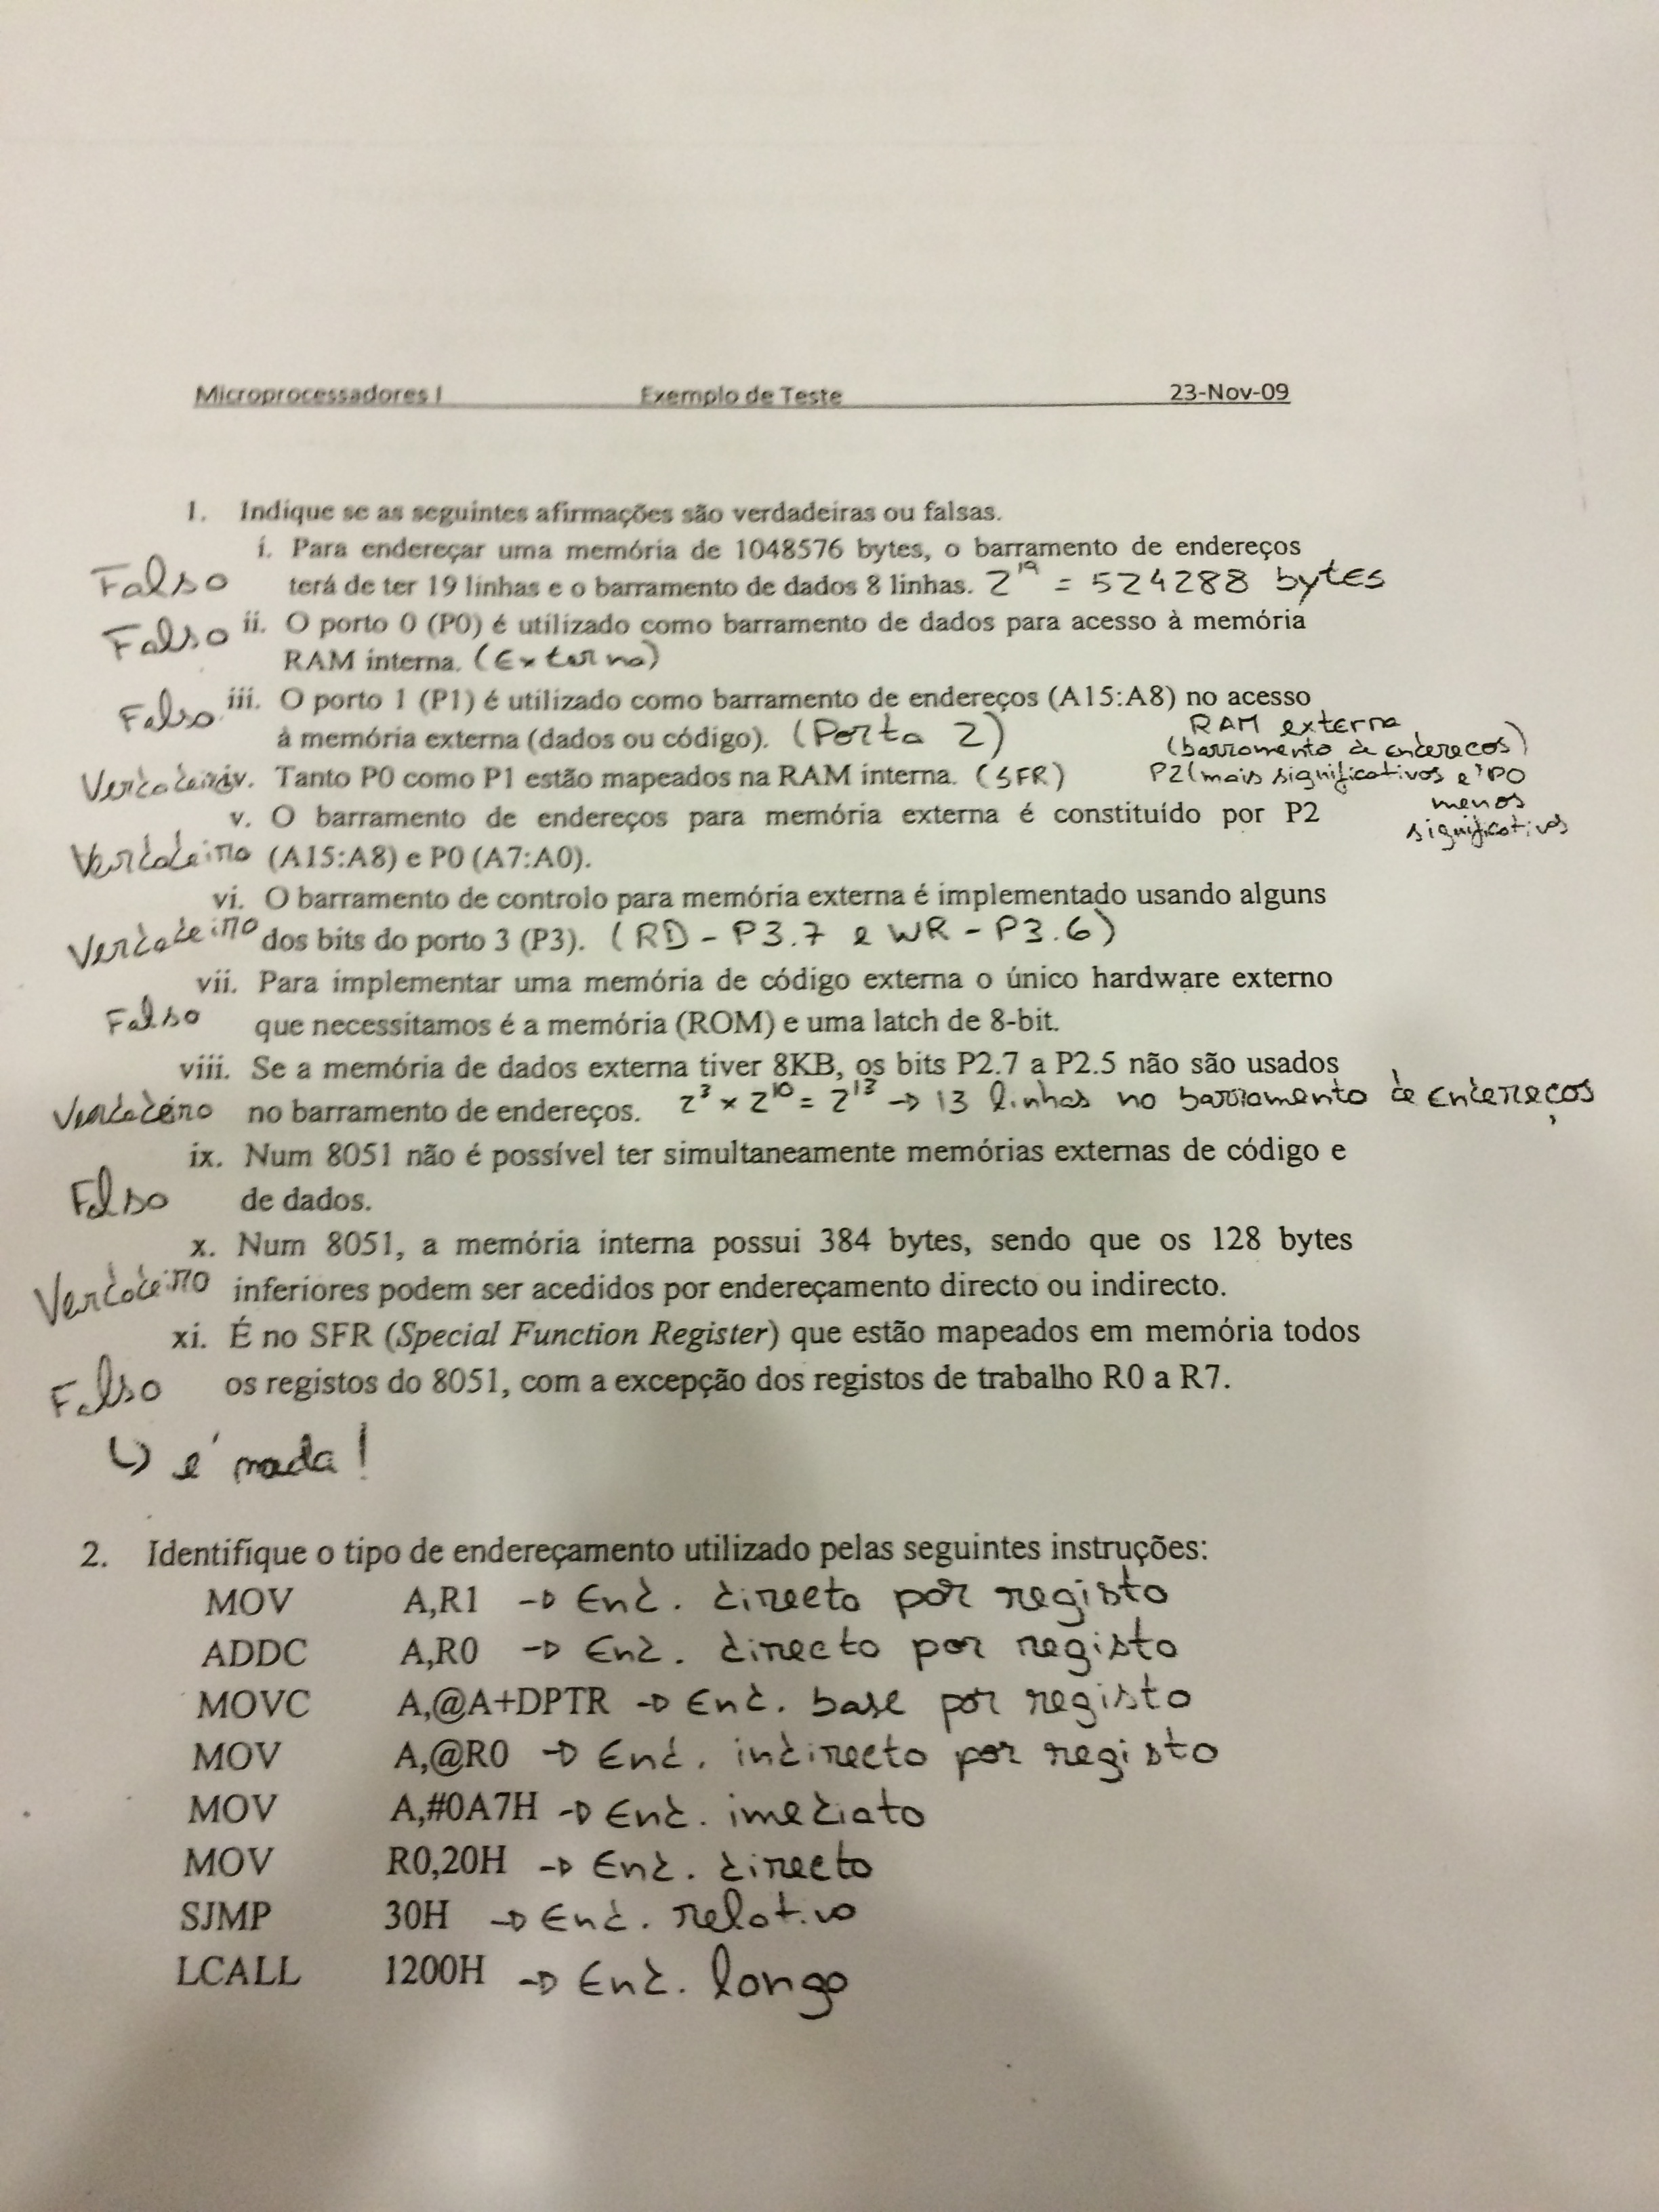 Microprocessadores I Exemplo de Teste 23-Nov-09
1. Indique se as seguintes afirmações são verdadeiras ou falsas.
i. Para endereçar uma memória de 1048576 bytes, o barramento de endereços
Falso terá de ter 19 linhas e o barramento de dados 8 linhas. 2^19 = 524288 bytes
Falso ii. O porto 0 (P0) é utilizado como barramento de dados para acesso à memória
RAM interna. (Externa)
Falso iii. O porto 1 (P1) é utilizado como barramento de endereços (A15:A8) no acesso
à memória externa (dados ou código). (Porta 2) RAM externa
(barramento de endereços)
Verdadeiro iv. Tanto P0 como P1 estão mapeados na RAM interna. (SFR) P2(mais significativos e P0
menos
significativos
v. O barramento de endereços para memória externa é constituído por P2
Verdadeiro (A15:A8) e P0 (A7:A0).
vi. O barramento de controlo para memória externa é implementado usando alguns
Verdadeiro dos bits do porto 3 (P3). (RD - P3.7 e WR - P3.6)
vii. Para implementar uma memória de código externa o único hardware externo
Falso que necessitamos é a memória (ROM) e uma latch de 8-bit.
viii. Se a memória de dados externa tiver 8KB, os bits P2.7 a P2.5 não são usados
Verdadeiro no barramento de endereços. 2^3 × 2^10 = 2^13 → 13 linhas no barramento de endereços
ix. Num 8051 não é possível ter simultaneamente memórias externas de código e
Falso de dados.
x. Num 8051, a memória interna possui 384 bytes, sendo que os 128 bytes
Verdadeiro inferiores podem ser acedidos por endereçamento directo ou indirecto.
xi. É no SFR (Special Function Register) que estão mapeados em memória todos
Falso os registos do 8051, com a excepção dos registos de trabalho R0 a R7.
↳ é nada!
2. Identifique o tipo de endereçamento utilizado pelas seguintes instruções:
MOV A,R1 → End. directo por registo
ADDC A,R0 → End. directo por registo
MOVC A,@A+DPTR → End. base por registo
MOV A,@R0 → End. indirecto por registo
MOV A,#0A7H → End. imediato
MOV R0,20H → End. directo
SJMP 30H → End. relativo
LCALL 1200H → End. longo